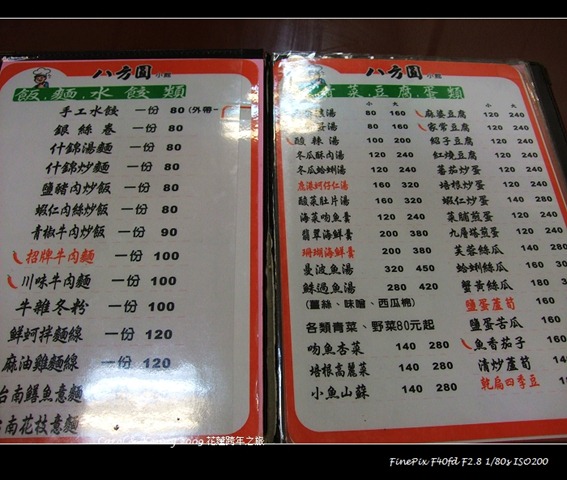 八方園小館
飯.麵.水餃類
手工水餃 一份 80 (外帶
銀絲卷 一份 80
什錦湯麵 一份 80
什錦炒麵 一份 80
鹽豬肉炒飯 一份 80
蝦仁肉絲炒飯 一份 80
青椒牛肉炒飯 一份 90
招牌牛肉麵 一份 100
川味牛肉麵 一份 100
牛雜冬粉 一份 100
鮮蚵拌麵線 一份 120
麻油雞麵線 一份 120
台南鱔魚意麵
台南花枝意麵
八方園小館
菜.豆腐.蛋類
小 大
湯 80 160
湯 80 160
酸辣湯 100 200
冬瓜酥肉湯 120 240
冬瓜蛤蜊湯 120 240
鹿港蚵仔仁湯 160 320
酸菜肚片湯 160 320
海菜吻魚羹 200 380
翡翠海鮮羹 200 380
珊瑚海鮮羹 200 380
曼波魚湯 320 450
鮢過魚湯 280 420
(薑絲、味噌、西瓜棉)
各類青菜、野菜80元起
吻魚杏菜 140 280
培根高麗菜 140 280
小魚山蘇 140 280
小 大
麻婆豆腐 120 240
家常豆腐 120 240
紹子豆腐 120 240
紅燒豆腐 120 240
蕃茄炒蛋 120 240
培根炒蛋 120 240
蝦仁炒蛋 140 280
菜脯煎蛋 120 240
九層塔煎蛋 120 240
芙蓉絲瓜 140
蛤蜊絲瓜 140 280
蟹黃絲瓜 160
鹽蛋蘆筍 160
鹽蛋苦瓜 160
魚香茄子 140
清炒蘆筍 140
乾扁四季豆 160
花蓮跨年之旅
FinePix F40fd F2.8 1/80s ISO200